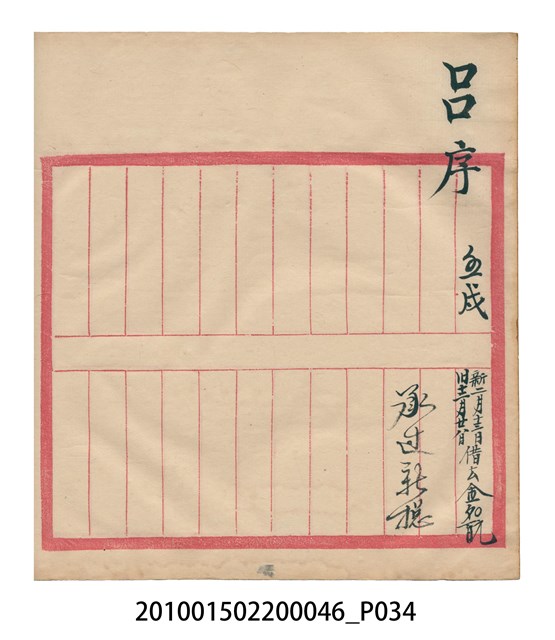 呂序
壬戌
新二月十三日
旧十二月廿八日
借去金
过新
201001502200046_P034